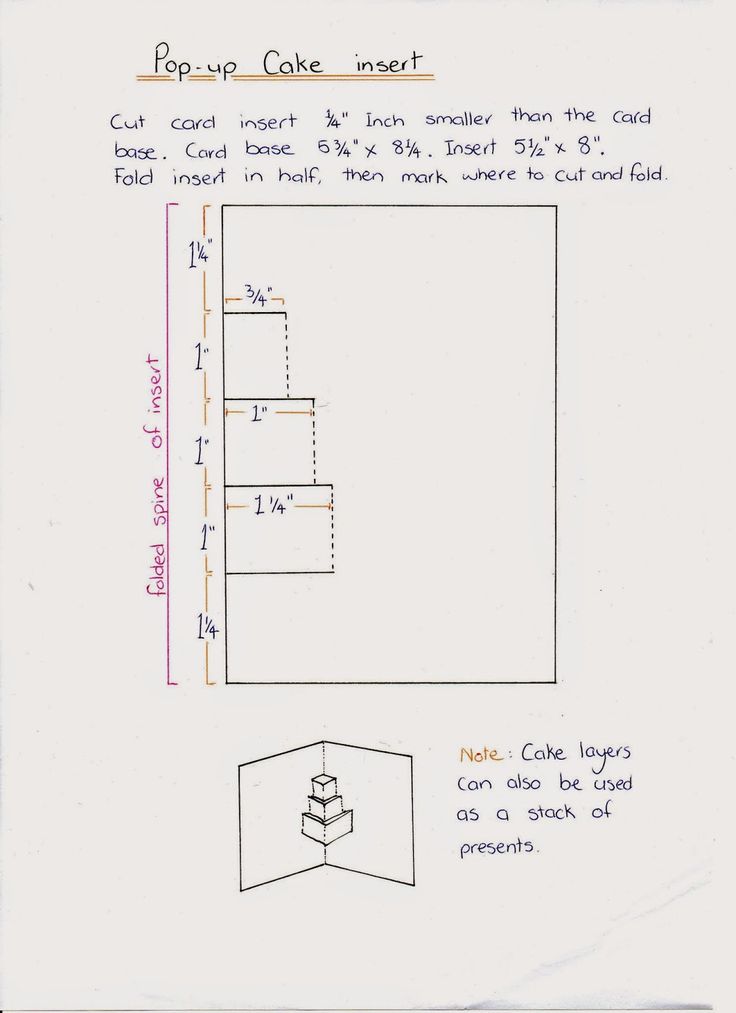 Pop-up Cake insert
Cut card insert ¼" Inch smaller than the card
base. Card base 5¾" x 8¼. Insert 5½" x 8".
Fold insert in half, then mark where to cut and fold.
1¼"
¾"
1"
1"
1"
1¼"
1"
1¼
folded spine of insert
Note: Cake layers
can also be used
as a stack of
presents.